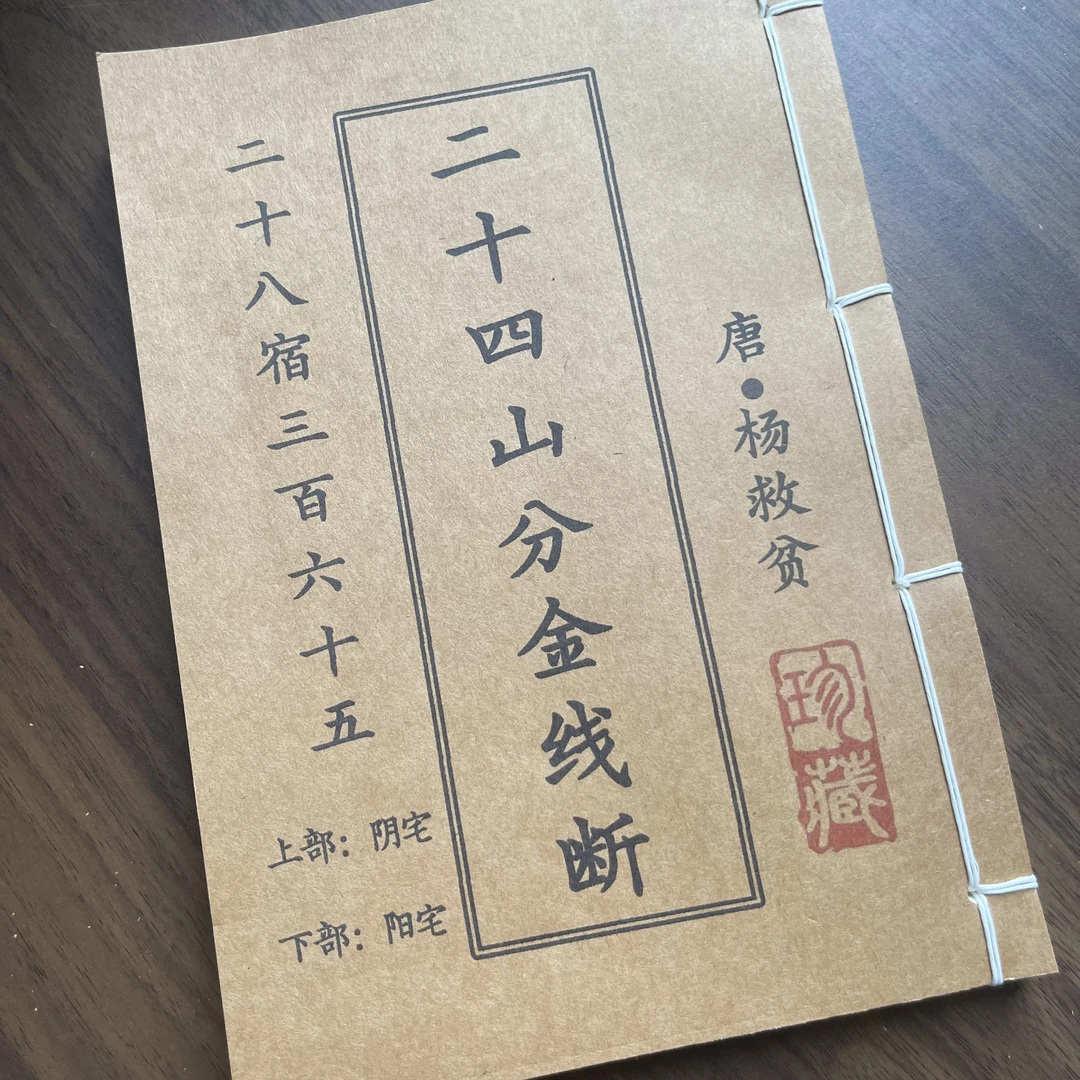 唐•杨救贫
珍藏
二十四山分金线断
二十八宿三百六十五
上部：阴宅
下部：阳宅